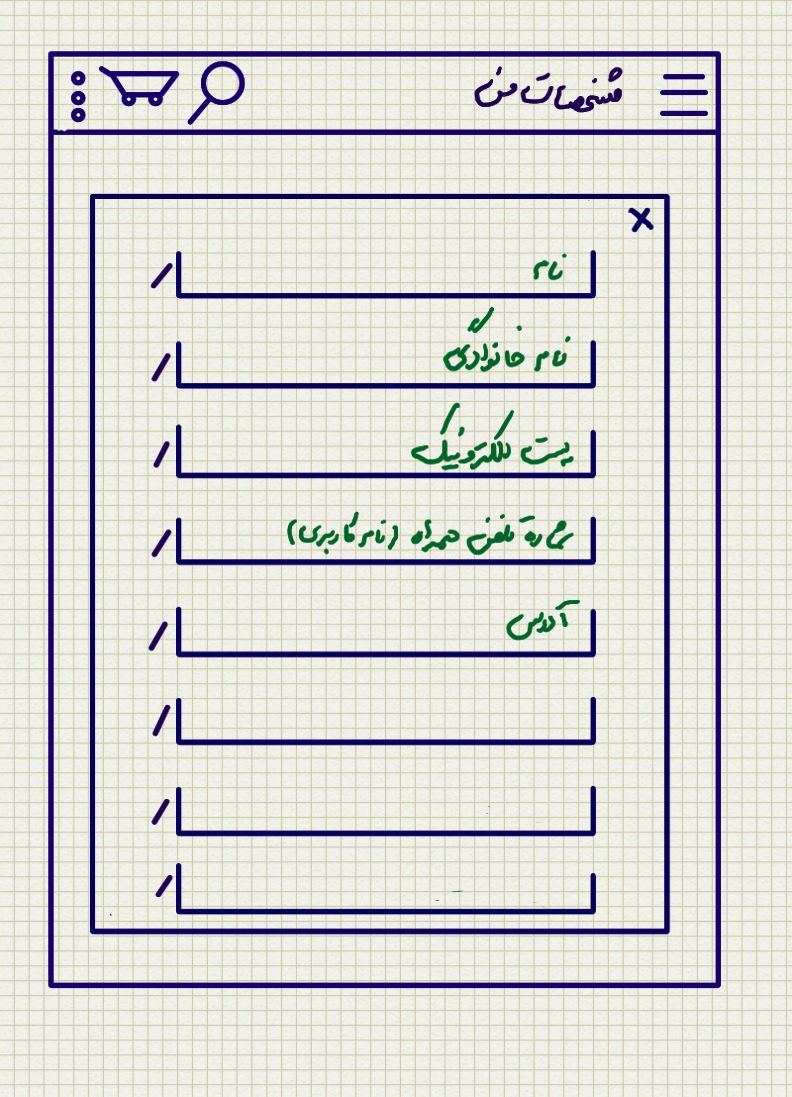 مشخصات من
x
نام
نام خانوادگی
پست الکترونیک
شماره تلفن همراه (نام کاربری)
آدرس